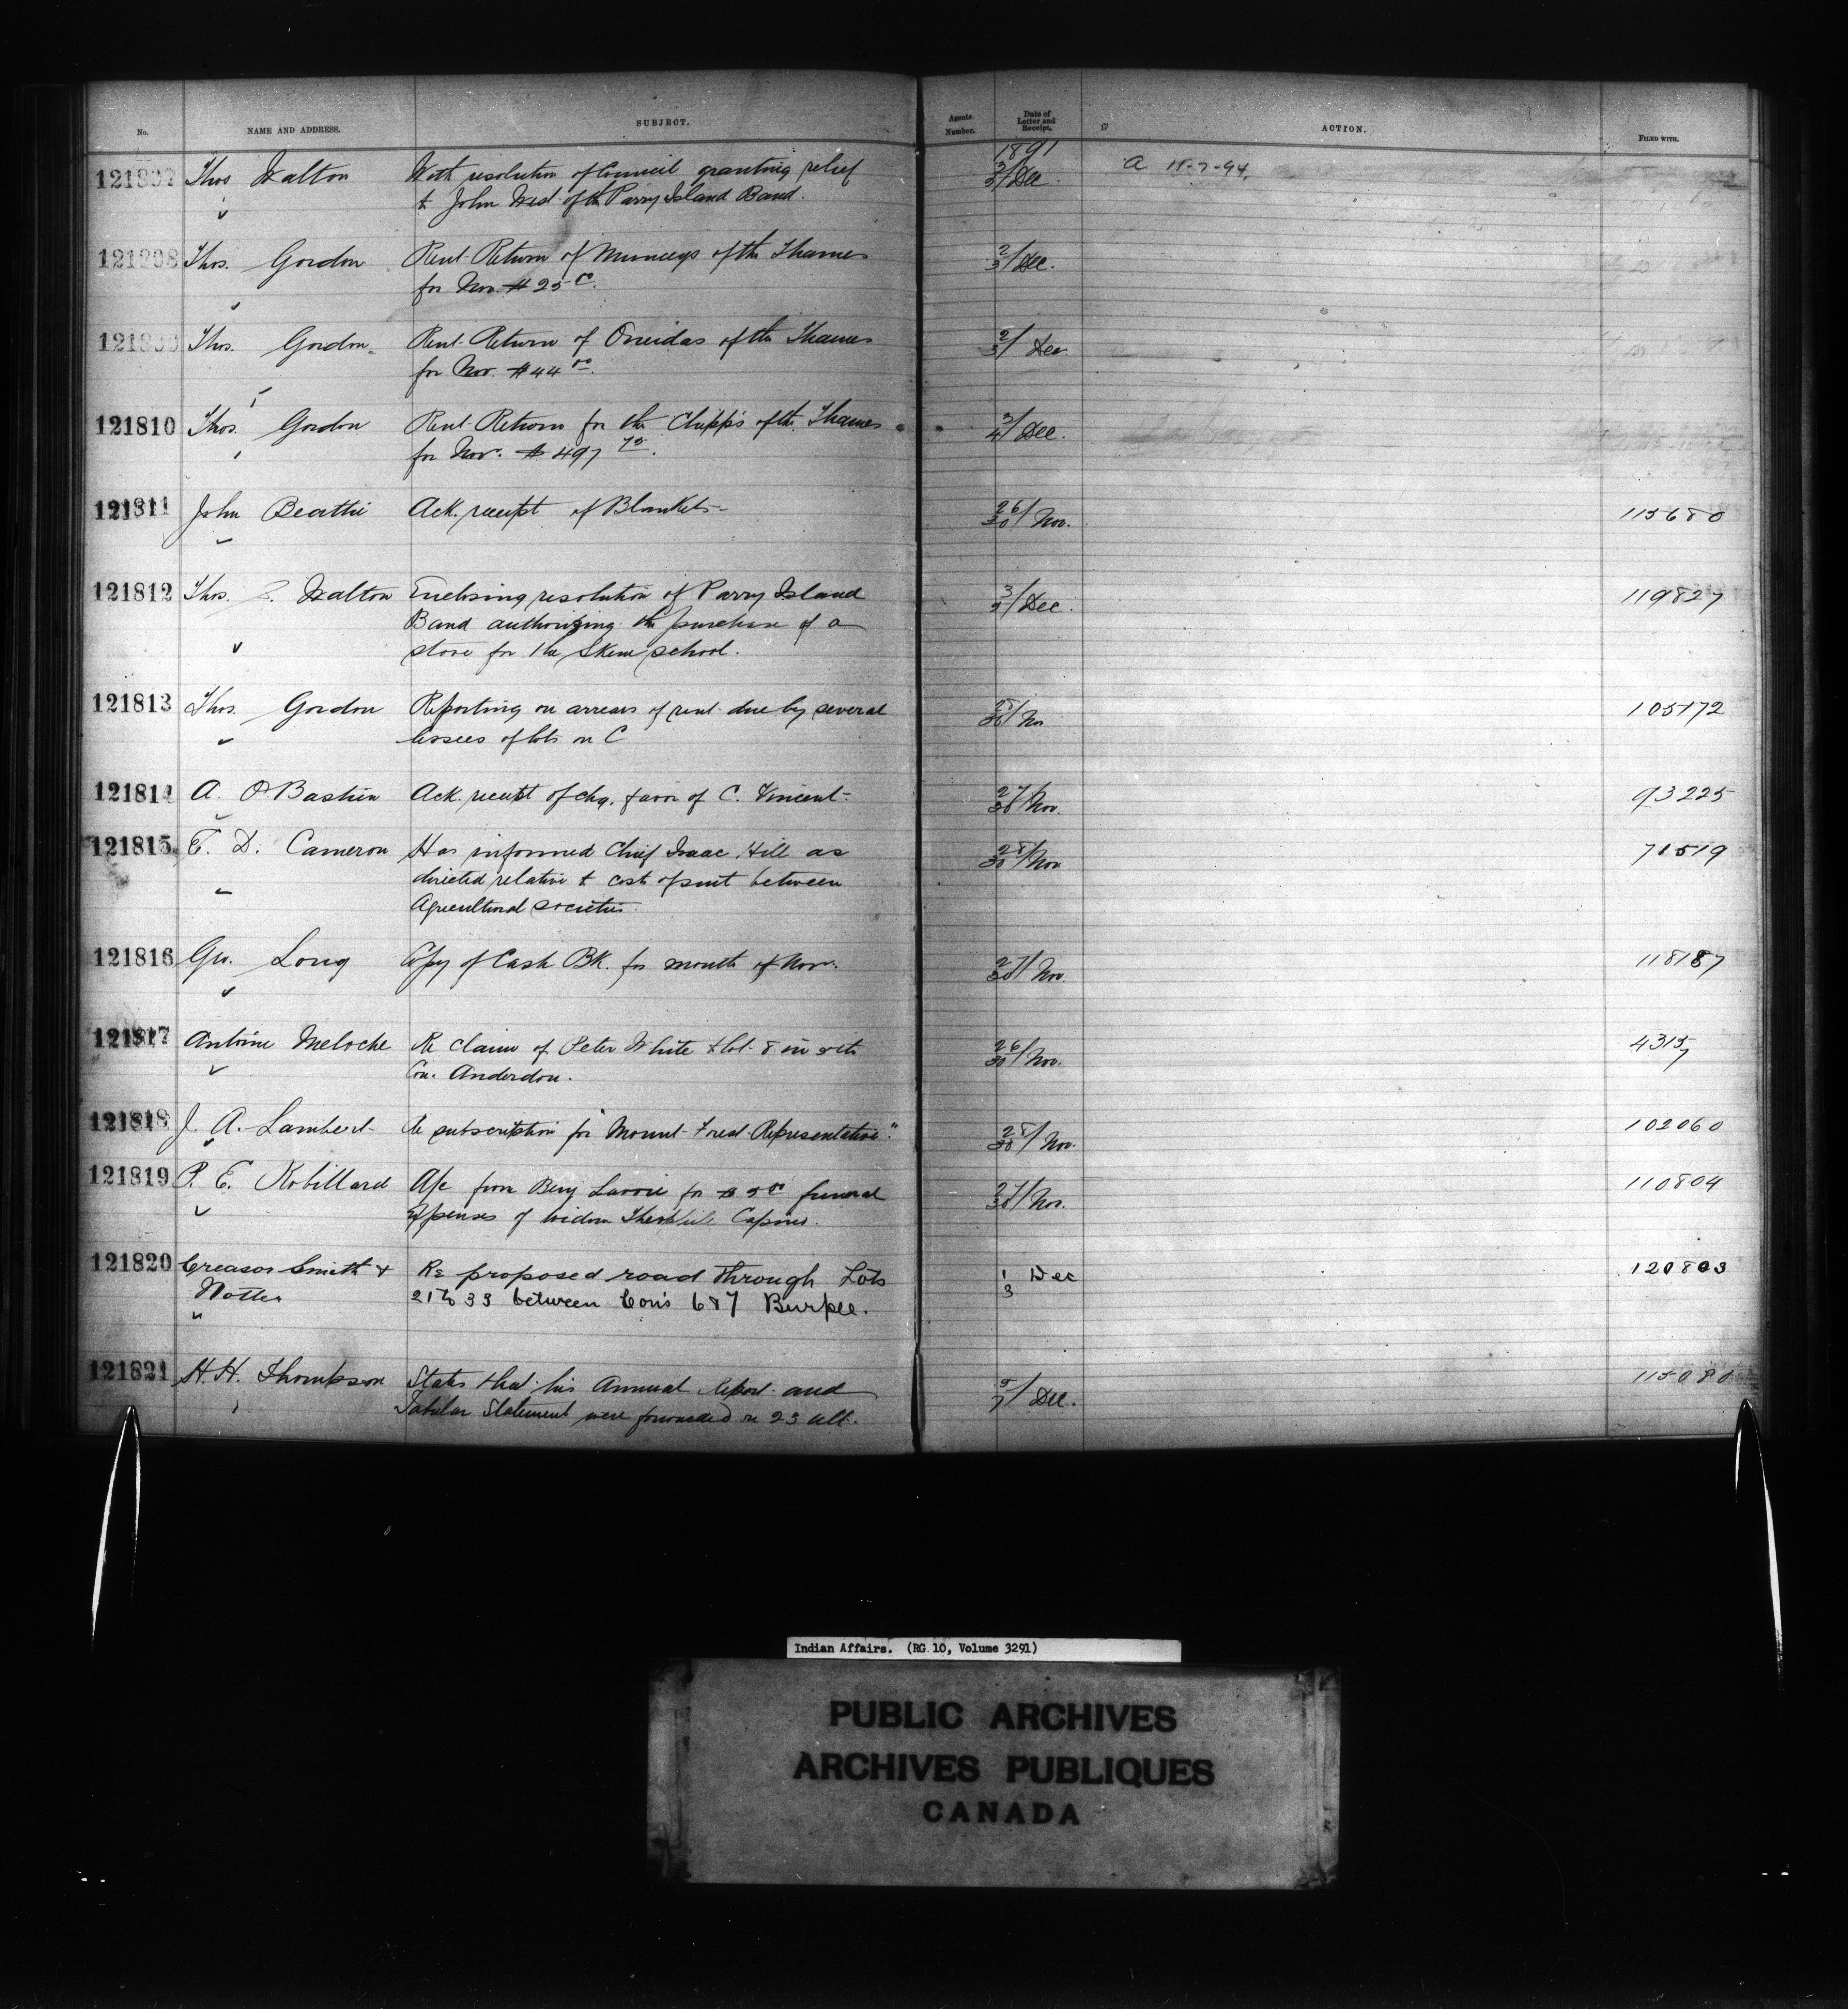 No.
NAME AND ADDRESS.
SUBJECT.
Agents Number.
Date of Letter and Receipt.
ACTION.
FILED WITH.
1891
121807 Thos Walton With resolution of Council granting relief 2/3/Dec A 11-7-94.
to John West of the Parry Island Band.
121808 Thos. Gordon Rent Return of Munceys of the Thames 2/3/Dec.
for Nov. $25
121809 Thos. Gordon Rent Return of Oneidas of the Thames 2/3/ Dec
for Nov. $44
121810 Thos. Gordon Rent Return for the Chipp's of the Thames 3/4/Dec.
for Nov. $497
121811 John Beattie Ack. receipt of Blankets 26/30/Nov. 115680
121812 Thos. S. Walton Enclosing resolution of Parry Island /Dec. 119827
Band authorizing the purchase of a
stove for the Skene school.
121813 Thos. Gordon Reporting on arrears of rent due by several /30/Nov 105172
lessees of lots on C
121814 A. O. Bastien Ack. receipt of chq. favor of C. Vincent 27/30/Nov. 93225
121815 E. D. Cameron Has informed Chief Isaac Hill as 28/30/Nov 71519
directed relative to cost of suit between
Agricultural Societies.
121816 Geo. Long Copy of Cash Bk. for month of Nov. 27/30/Nov. 118187
121817 Antoine Meloche Re claim of Peter White to lot 8 in 5th 26/30/Nov. 43157
Con. Anderdon.
121818 J. A. Lambert Re subscription for "Mount Forest Representative." 28/30/Nov. 102060
121819 P. E. Robillard A/c from Benj for $5 funeral 27/30/Nov. 110804
expenses of widow
121820 Creasor Smith & Re proposed road through Lots 1/3 Dec 120803
Notter 21 to 33 between Con's 6 & 7 Burpee.
121821 H. H. Thompson States that his Annual Report and 5/7/ Dec.
Tabular Statement were forwarded on 23 ult.
Indian Affairs. (RG 10, Volume 3291)
PUBLIC ARCHIVES
ARCHIVES PUBLIQUES
CANADA